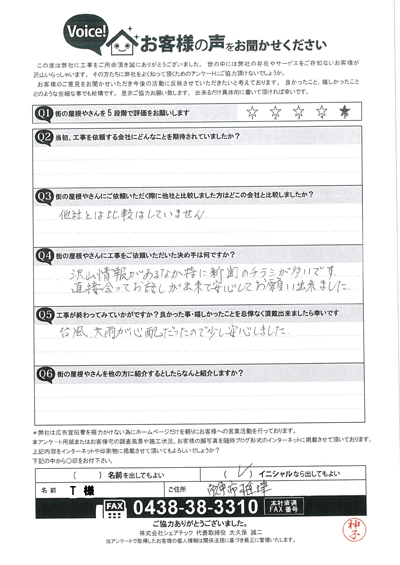 Voice!
お客様の声をお聞かせください
この度は弊社に工事をご用命頂き誠にありがとうございました。世の中には弊社の存在やサービスをご存知ないお客様が
沢山いらっしゃいます。その方たちに弊社をよく知って頂くためのアンケートにご協力頂けないでしょうか。
お客様のご意見をお聞かせいただき今後の活動に反映させていただきたいと考えております。良かったこと、嬉しかったこと
どのような些細な事でも結構です。是非ご協力お願い致します。出来るだけ具体的に書いて頂ければ幸いです。
Q1 街の屋根やさんを5段階で評価をお願いします ☆ ☆ ☆ ☆ ★
Q2 当初、工事を依頼する会社にどんなことを期待されていましたか?
Q3 街の屋根やさんにご依頼いただく際に他社と比較しました方はどこの会社と比較しましたか?
他社とは比較はしていません
Q4 街の屋根やさんに工事をご依頼いただいた決め手は何ですか?
沢山情報があるなか特に新聞のチラミが多いです。
直接会ってお話しが出来て安心してお願い出来ました。
Q5 工事が終わってみていかがですか?良かった事・嬉しかったことを忌憚なく頂戴出来ましたら幸いです
台風、大雨が心配だったので少し安心しました。
Q6 街の屋根やさんを他の方に紹介するとしたらなんと紹介しますか?
*弊社は広告宣伝費を極力かけない為にホームページだけを頼りにお客様への営業活動を行っております。
本アンケート用紙またはお客様宅の調査風景や施工状況、お客様の顔写真を随時ブログ形式のインターネットに掲載させて頂いております。
上記内容をインターネットや印象物に掲載させて頂いてもよろしいでしょうか?
下記の中から○印をお付下さい。
( ) 名前を出してもよい ( ✓ ) イニシャルなら出してもよい
名前 T 様 ご住所
FAX 0438-38-3310 本社直通 FAX番号
ご協力ありがとうございました。
株式会社シェアテック 代表取締役 大久保 誠二
当アンケートで取得したお客様の個人情報は関係法規に基づき厳正に管理いたします。